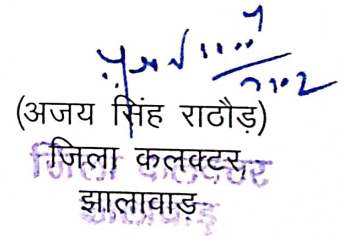 (अजय सिंह राठौड़)
जिला कलक्टर
झालावाड़